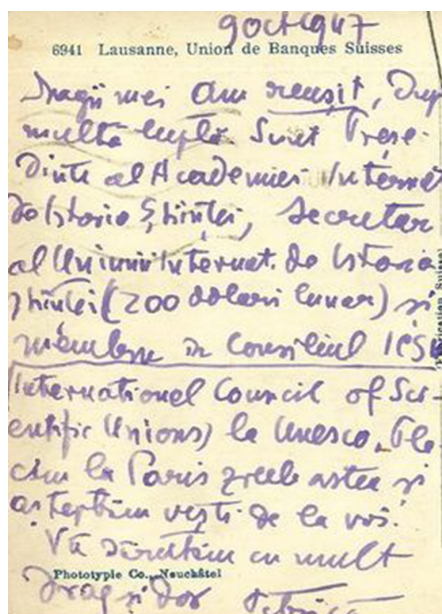 9 oct 1947
6941 Lausanne, Union de Banques Suisses
Dragii mei Am reuşit, Dup
multă luptă Sunt Preşe-
dinte al Academiei Internat
de Istoria Ştiinţei, Secretar
al Uniunii Internat. de Istoria
ştiinţei (200 dolari lunar) şi
membru în Consiliul ICSU
International Council of Sci-
entific Unions) la Unesco. Ple
căm la Paris zilele astea şi
aşteptăm veşti de la voi.
Vă sărutăm cu mult
Phototypie Co., Neuchâtel
Drag şi dor